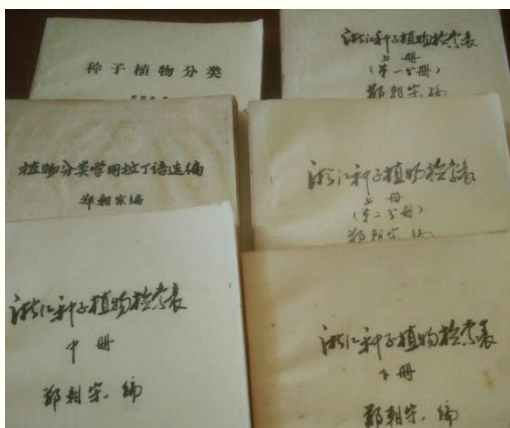 种子植物分类
浙江种子植物检索表
上册
(第一分册)
郑朝宗编
植物分类学用拉丁语选编
郑朝宗编
浙江种子植物检索表
上册
(第二分册)
郑朝宗编
浙江种子植物检索表
中册
郑朝宗.编
浙江种子植物检索表
下册
郑朝宗.编